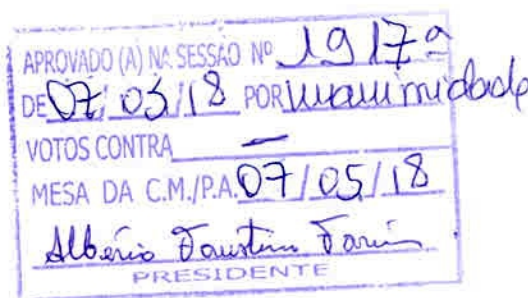 APROVADO (A) NA SESSÃO Nº 1917ª
DE 07/05/18 POR unanimidade
VOTOS CONTRA —
MESA DA C.M./P.A. 07/05/18
Albério Faustino Farias
PRESIDENTE